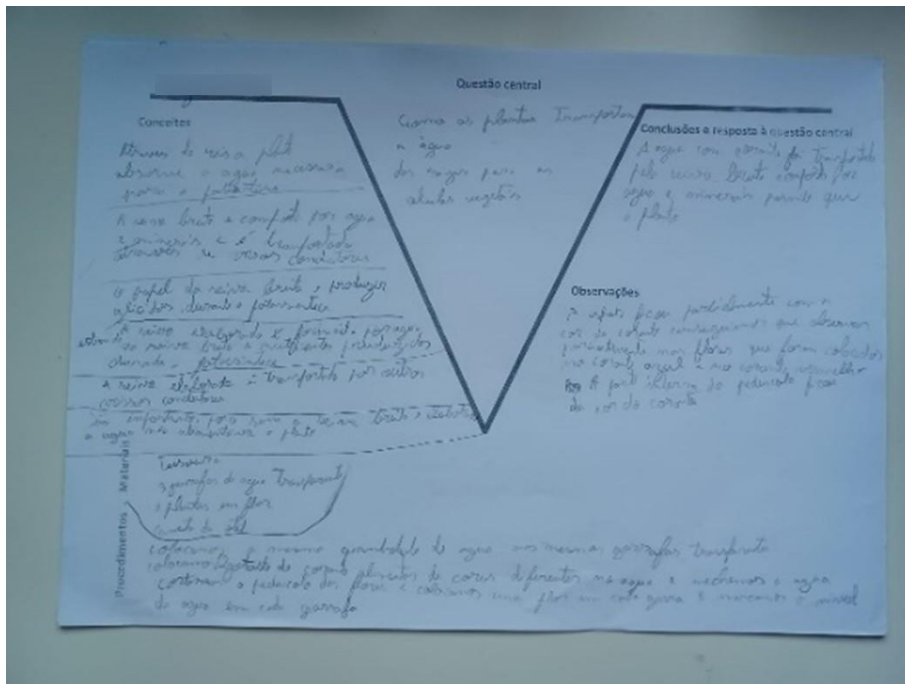 Questão central
Como as plantas Transportam
a água
dos vasos para as
células vegetais
Conceitos
Através da raiz a planta
absorve a água necessária
para a
A seiva bruta é composta por água
e minerais e é transportada
através de vasos condutores
o papel da seiva bruta é produzir
durante a fotossíntese
A seiva elaborada é formada por água
da seiva bruta e produzidos
durante a fotossíntese
a seiva elaborada é transportada por outros
vasos condutores
importante para a seiva bruta e
a água a planta
Conclusões e resposta à questão central
A água com corante foi transportada
pela seiva bruta composta por
água e minerais
a planta
Observações
ficou parcialmente com a
cor do corante que observamos
parcialmente nas flores que foram colocadas
no corante azul e no corante vermelho
A parte interna do pedúnculo ficou
da cor do corante
Materiais
Tesoura
3 garrafas de água Transparente
plantas em flor
Procedimentos
colocamos a mesma quantidade de água nas mesmas garrafas transparente
colocamos gotas de corante alimentar de cores diferentes na água e mechemos a água
cortamos o pedúnculo das flores e colocamos uma flor em cada e marcamos o nível
de água em cada garrafa